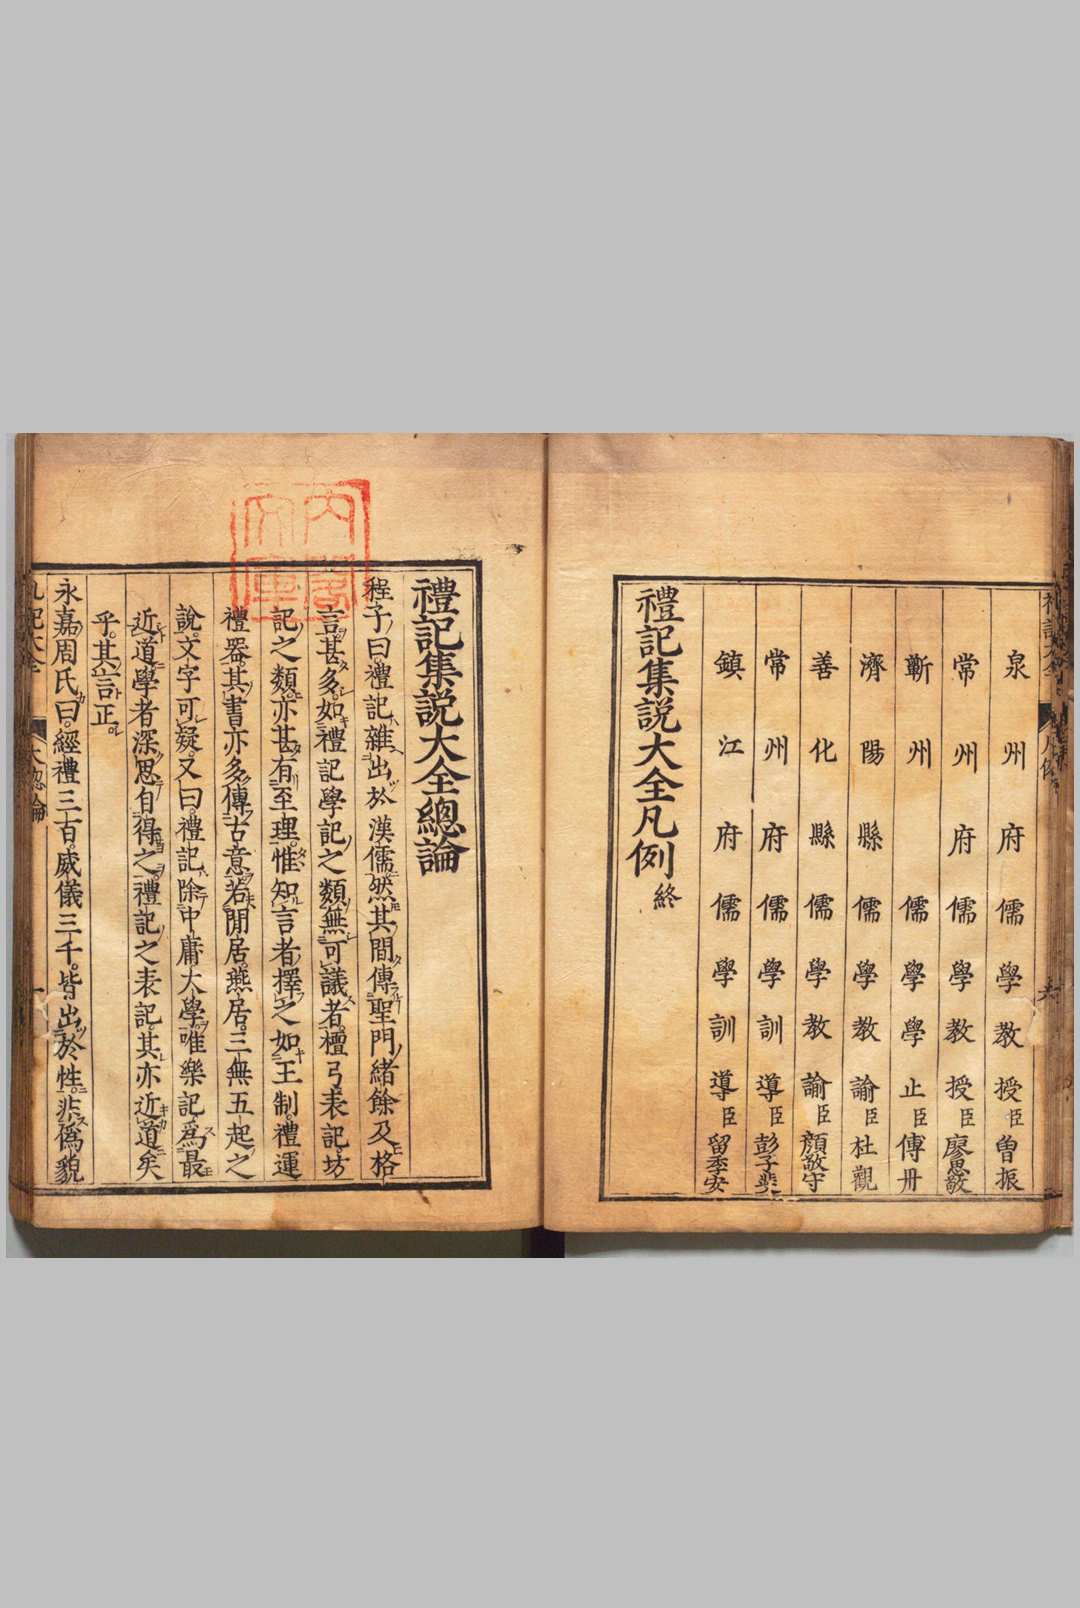 泉州府儒學教授臣曾振
常州府儒學教授臣廖思敬
蘄州儒學學止臣傅冊
濟陽縣儒學教諭臣杜觀
善化縣儒學教諭臣顏敬守
常州府儒學訓導臣彭子斐
鎮江府儒學訓導臣留季安
禮記集説大全凡例終
禮記集説大全總論
程子曰禮記雜出於漢儒然其間傳聖門緒餘及格
言甚多如禮記學記之類無可議者檀弓表記坊
記之類亦甚有至理惟知言者擇之如王制禮運
禮器其書亦多傳古意若閒居燕居三無五起之
說文字可疑又曰禮記除中庸大學唯樂記爲最
近道學者深思自得之禮記之表記其亦近道矣
乎其言正
永嘉周氏曰經禮三百威儀三千皆出於性非僞貌
內閣文庫